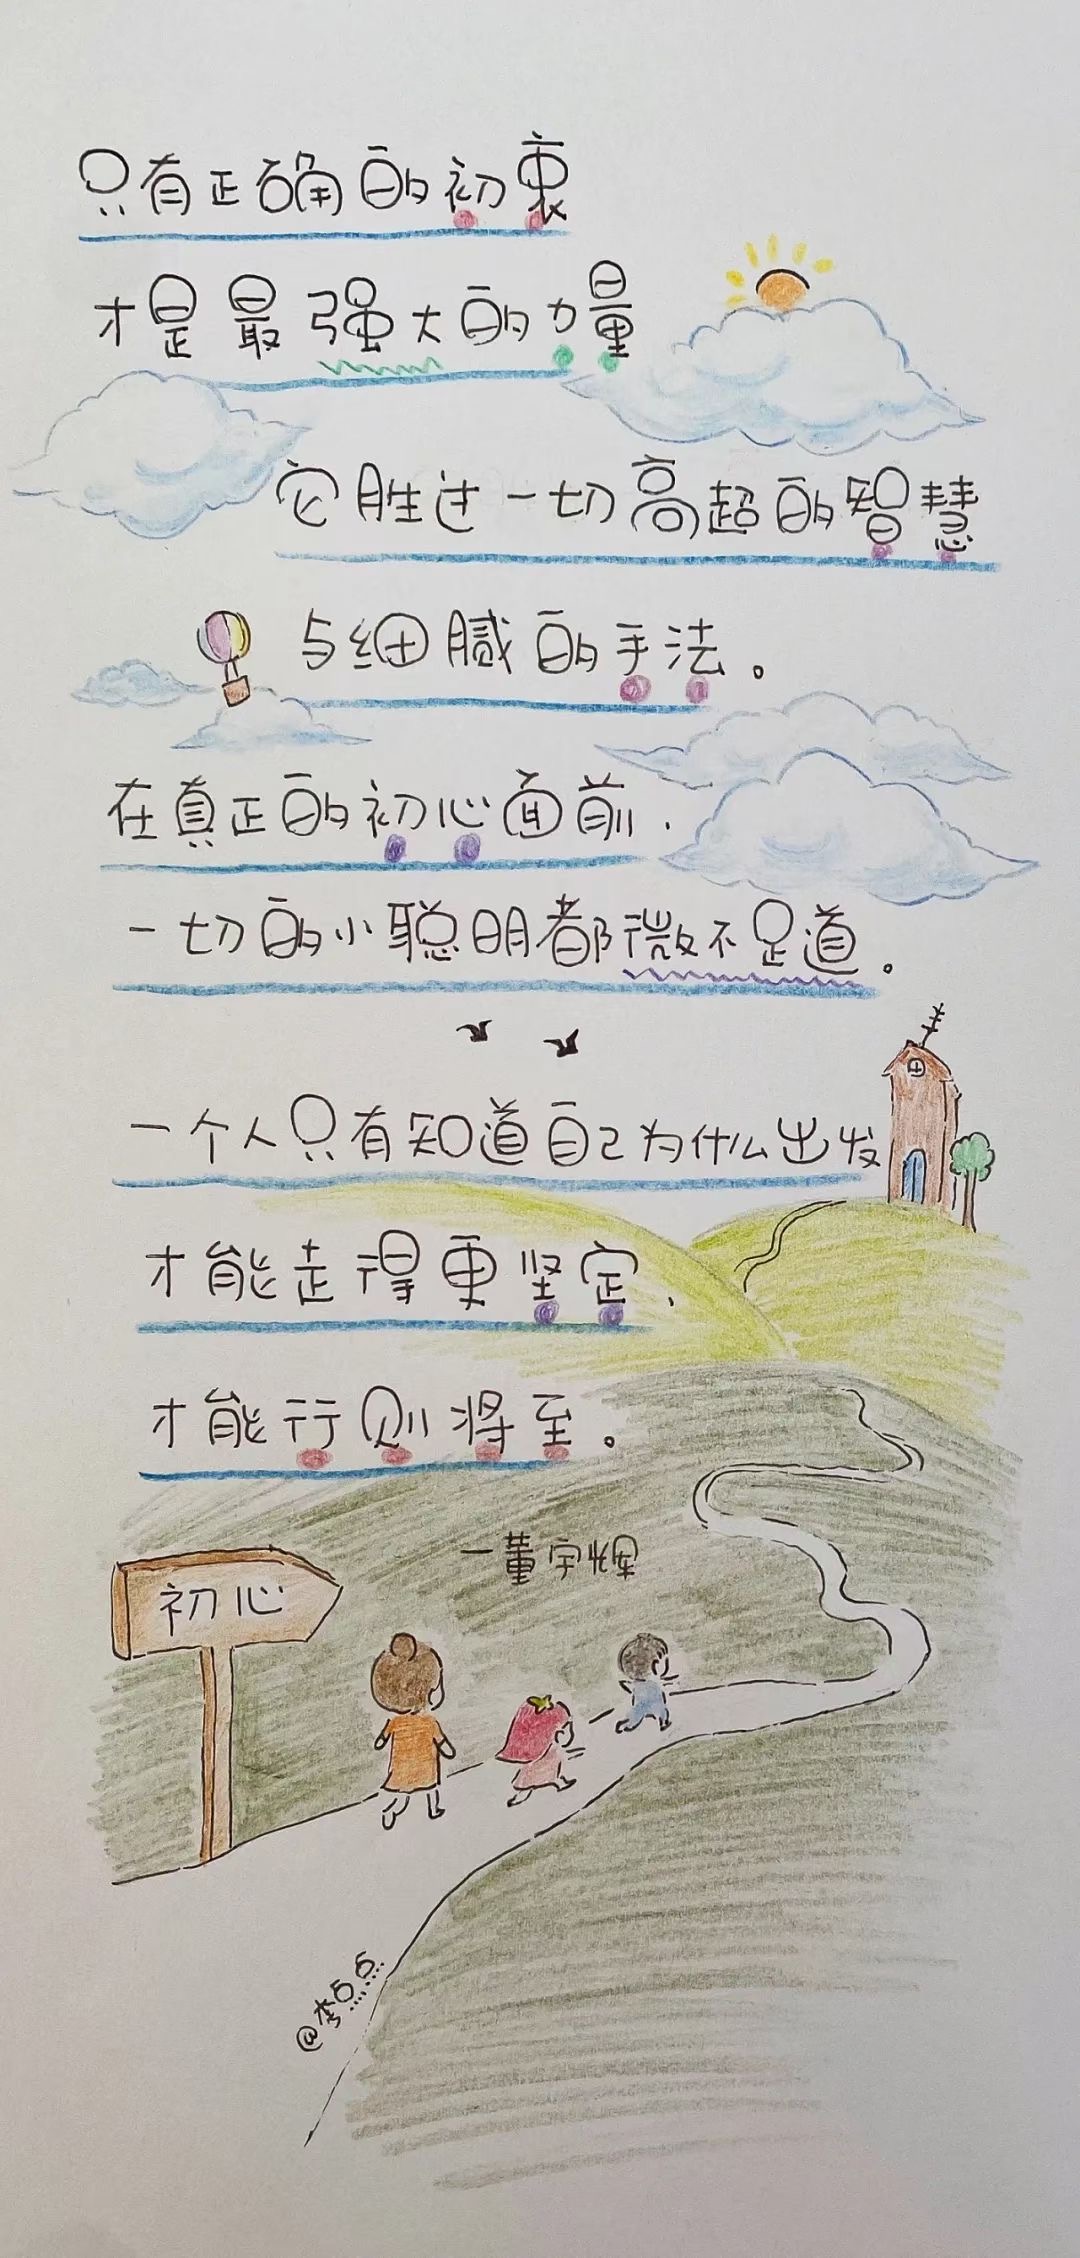 只有正确的初衷
才是最强大的力量
它胜过一切高超的智慧
与细腻的手法。
在真正的初心面前，
一切的小聪明都微不足道。
一个人只有知道自己为什么出发
才能走得更坚定，
才能行则将至。
一董宇辉
初心
@李点点